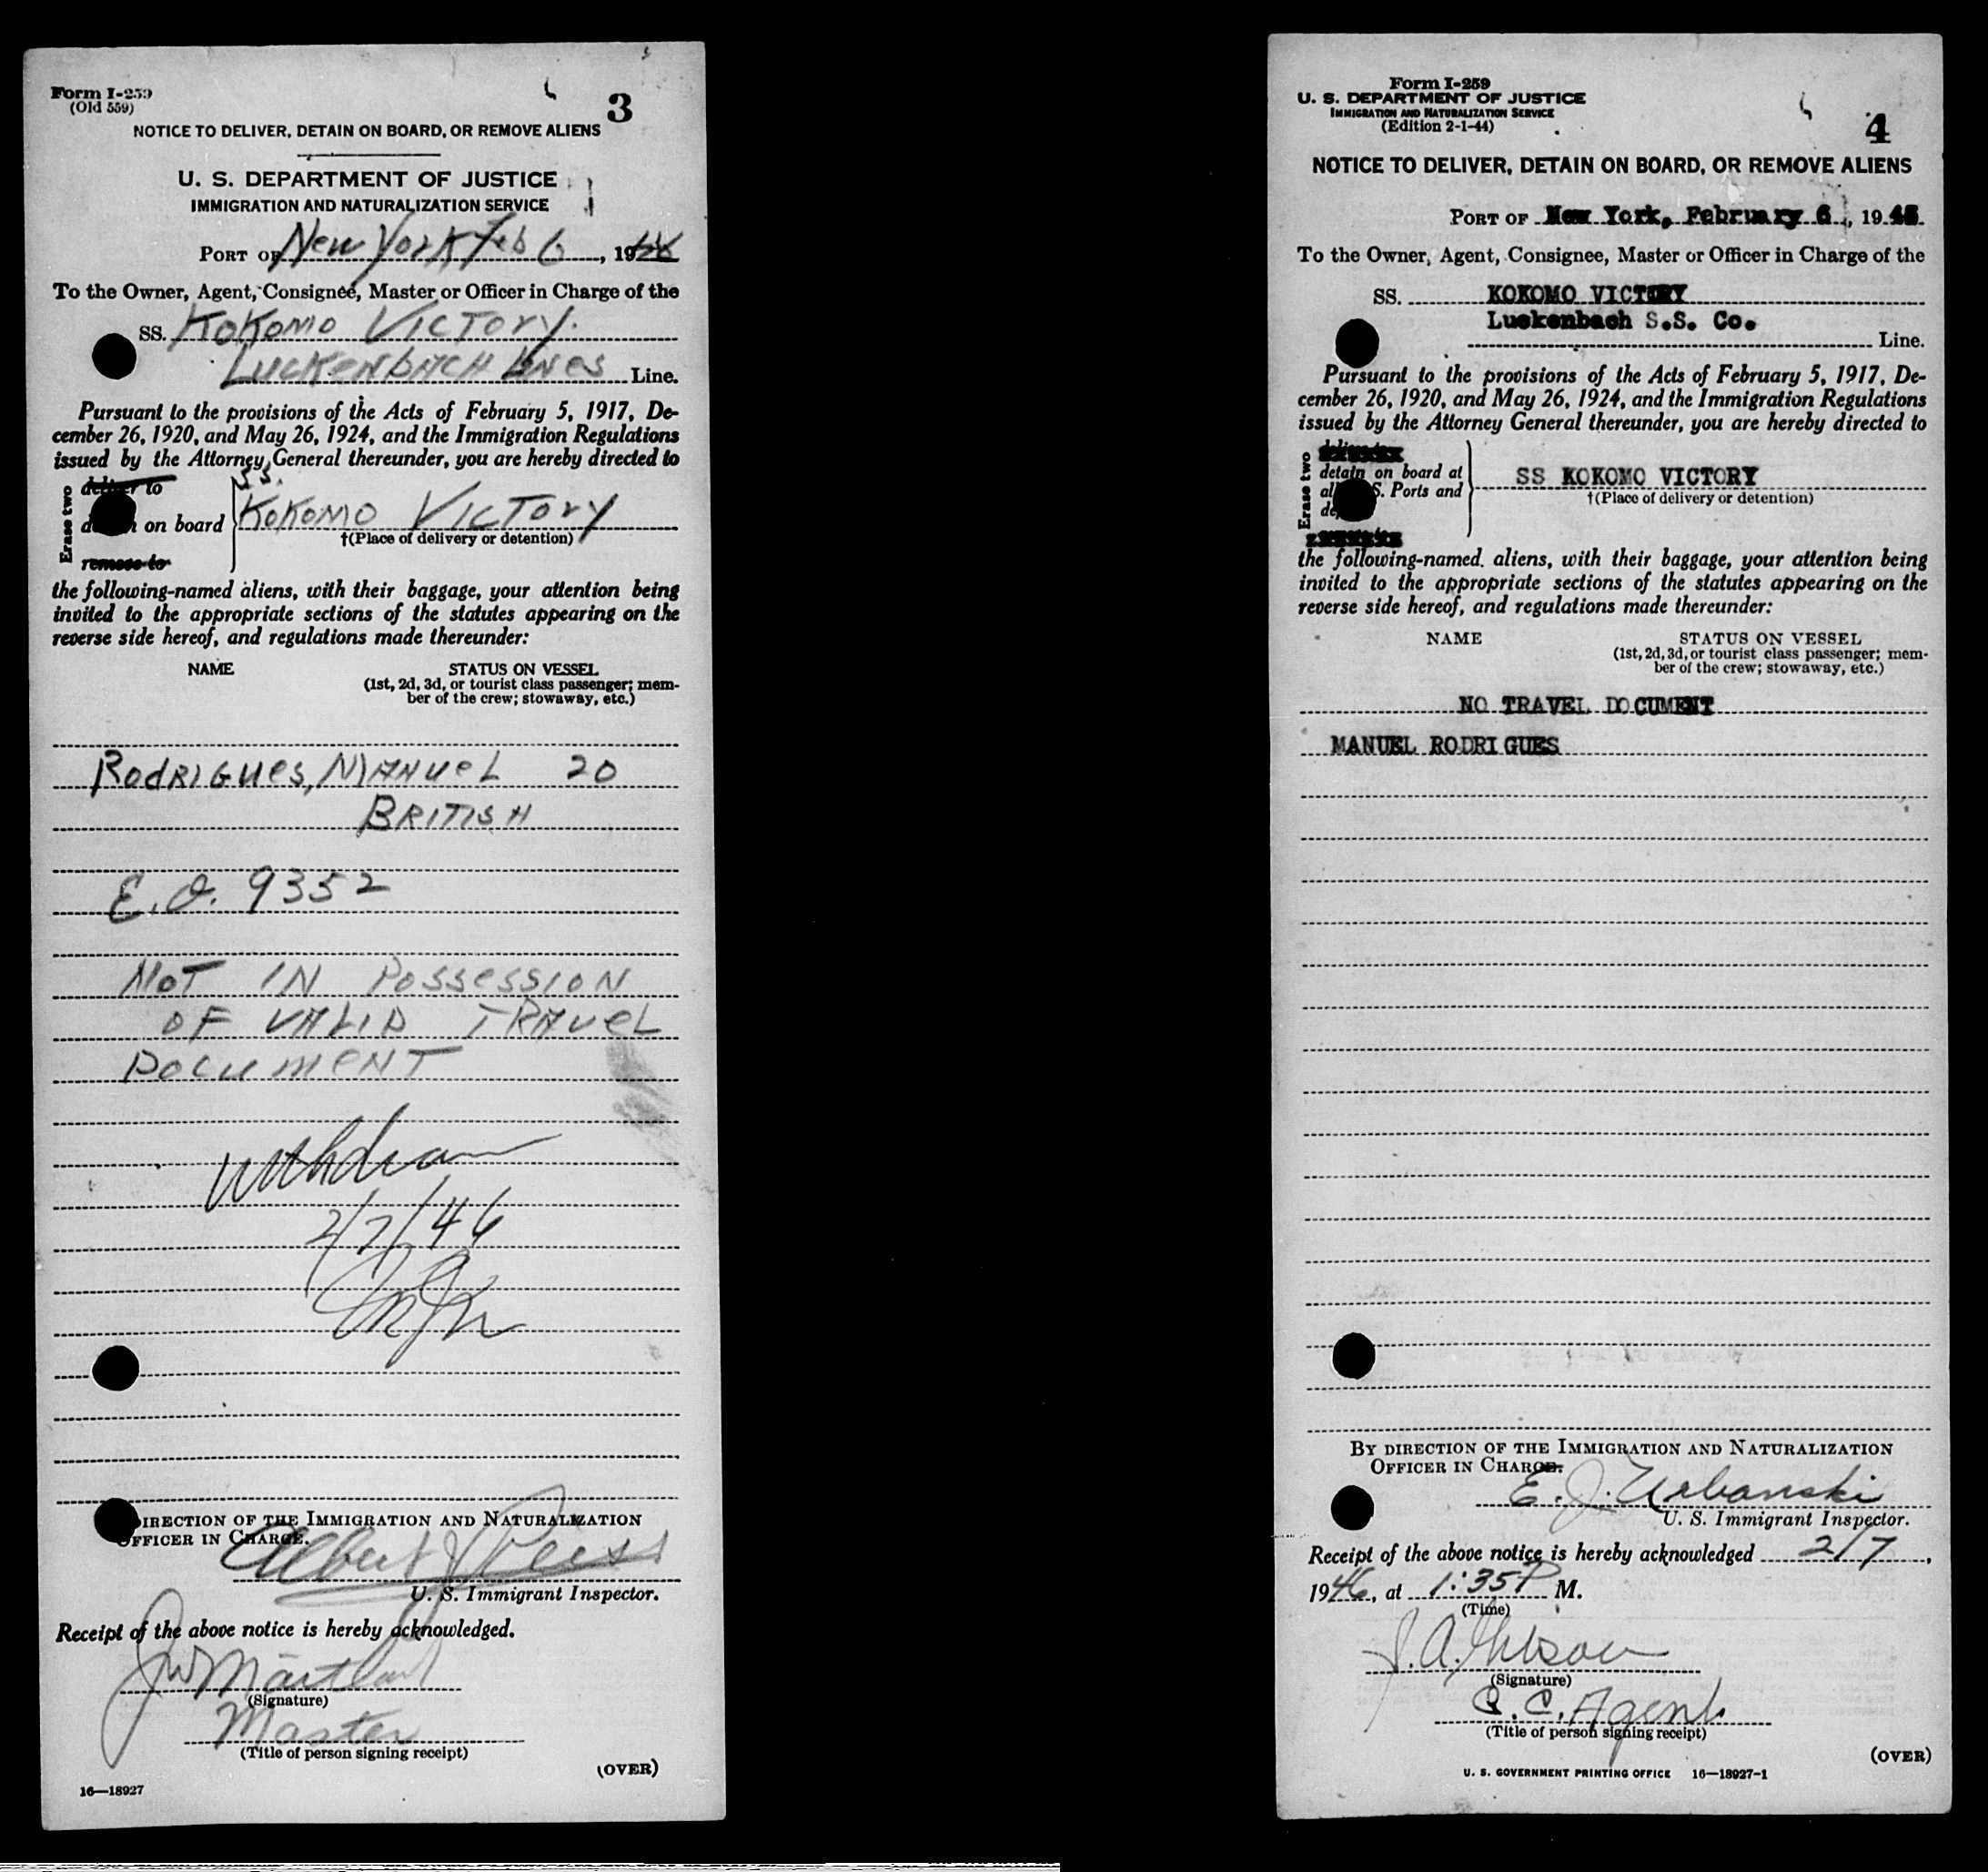 Form I-259
(Old 559)
3
NOTICE TO DELIVER, DETAIN ON BOARD, OR REMOVE ALIENS
U. S. DEPARTMENT OF JUSTICE
IMMIGRATION AND NATURALIZATION SERVICE
PORT OF New York Feb 6, 1946
To the Owner, Agent, Consignee, Master or Officer in Charge of the
SS. KOKOMO VICTORY.
LUCKENBACH LINES Line.
Pursuant to the provisions of the Acts of February 5, 1917, De-
cember 26, 1920, and May 26, 1924, and the Immigration Regulations
issued by the Attorney General thereunder, you are hereby directed to
Erase two
deliver to
S.S.
on board KOKOMO VICTORY
†(Place of delivery or detention)
remove to
the following-named aliens, with their baggage, your attention being
invited to the appropriate sections of the statutes appearing on the
reverse side hereof, and regulations made thereunder:
NAME STATUS ON VESSEL
(1st, 2d, 3d, or tourist class passenger; mem-
ber of the crew; stowaway, etc.)
RODRIGUES, MANUEL 20
BRITISH
E.O. 9352
NOT IN POSSESSION
OF VALID TRAVEL
DOCUMENT
Withdrawn
2/7/46
DIRECTION OF THE IMMIGRATION AND NATURALIZATION
OFFICER IN CHARGE.
Albert J
U. S. Immigrant Inspector.
Receipt of the above notice is hereby acknowledged.
(Signature)
Master
(Title of person signing receipt)
(OVER)
16—18927
Form I-259
U. S. DEPARTMENT OF JUSTICE
IMMIGRATION AND NATURALIZATION SERVICE
(Edition 2-1-44)
4
NOTICE TO DELIVER, DETAIN ON BOARD, OR REMOVE ALIENS
PORT OF New York, February 6, 1946
To the Owner, Agent, Consignee, Master or Officer in Charge of the
SS. KOKOMO VICTORY
Luckenbach S.S. Co.
Line.
Pursuant to the provisions of the Acts of February 5, 1917, De-
cember 26, 1920, and May 26, 1924, and the Immigration Regulations
issued by the Attorney General thereunder, you are hereby directed to
Erase two
detain on board at SS KOKOMO VICTORY
S. Ports and †(Place of delivery or detention)
the following-named aliens, with their baggage, your attention being
invited to the appropriate sections of the statutes appearing on the
reverse side hereof, and regulations made thereunder:
NAME STATUS ON VESSEL
(1st, 2d, 3d, or tourist class passenger; mem-
ber of the crew; stowaway, etc.)
NO TRAVEL DOCUMENT
MANUEL RODRIGUES
BY DIRECTION OF THE IMMIGRATION AND NATURALIZATION
OFFICER IN CHARGE.
E. J. Urbanski
U. S. Immigrant Inspector.
Receipt of the above notice is hereby acknowledged 2/7,
1946, at 1:35 P M.
(Time)
J. A. Gibson
(Signature)
C. C. Agent.
(Title of person signing receipt)
(OVER)
U. S. GOVERNMENT PRINTING OFFICE 16—18927-1